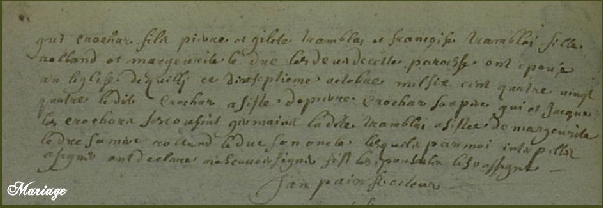 guy crochar fils pierre et gilete tramblai et francoise tramblai fille
rolland et marguerite le duc les deux de cette paroisse ont épousé
en leglise de quilli ce dixseptieme octobre mil six cent quatre vingt
quatre ledit crochar asisté de pierre crochar son père guy et Jacque
les crochars ses cousins germains ladite tramblai asistée de marguerite
leduc sa mere rolland leduc son oncle lesquels par moi
asignés ont declaré ne scavoir signer
Jan pain Recteur
Mariage